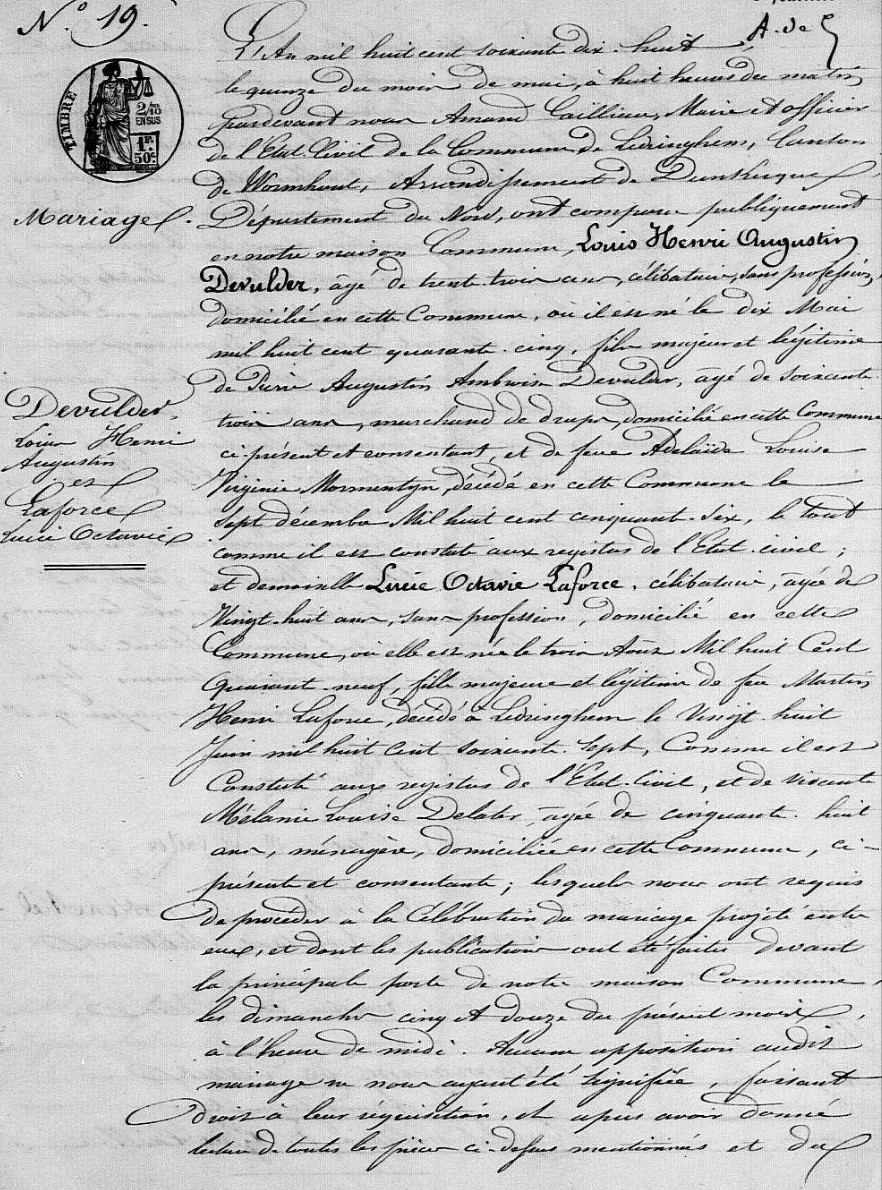 N.º 19.
A. de
TIMBRE
2/10
EN SUS
1F.
50c
Mariage.
Devulder,
Louis Henri
Augustin
et
Laforce
Lucie Octavie
L'An mil huit cent soixante dix-huit,
le quinze du mois de mai, à huit heures du matin
pardevant nous Amand Cailliau, Maire et officier
de l'Etat-Civil de la Commune de Ledringhem, Canton
de Wormhout, Arrondissement de Dunkerque,
Département du Nord, ont comparu publiquement
en notre maison Commune, Louis Henri Augustin
Devulder, âgé de trente-trois ans, célibataire, sans profession,
domicilié en cette Commune, où il est né le dix Mai
mil huit cent quarante-cinq, fils majeur et légitime
de Pierre Augustin Ambroise Devulder, âgé de soixante
trois ans, marchand de draps, domicilié en cette Commune
ci-présent et consentant, et de feue Adelaïde Louise
Virginie Mormentyn, décédé en cette Commune le
sept décembre Mil huit cent cinquante-six, le tout
comme il est constaté aux registres de l'Etat-civil ;
et demoiselle Lucie Octavie Laforce, célibataire, âgée de
Vingt-huit ans, sans profession, domicilié en cette
Commune, où elle est née le trois Août Mil huit Cent
Quarante-neuf, fille majeure et légitime de feu Martin
Henri Laforce, décédé à Ledringhem le Vingt-huit
Juin mil huit Cent soixante-sept, Comme il est
Constaté aux registres de l'Etat-Civil, et de vivante
Mélanie Louise Delater, âgée de cinquante-huit
ans, ménagère, domiciliée en cette Commune, ci-
présente et consentante ; lesquels nous ont requis
de procéder à la Célébration du mariage projeté entre
eux, et dont les publications ont été faites devant
la principale porte de notre maison Commune,
les dimanches cinq et douze du présent mois,
à l'heure de midi. Aucune opposition audit
mariage ne nous ayant été signifiée, faisant
droit à leur réquisition, et après avoir donné
lecture de toutes les pièces ci-dessus mentionnés et du